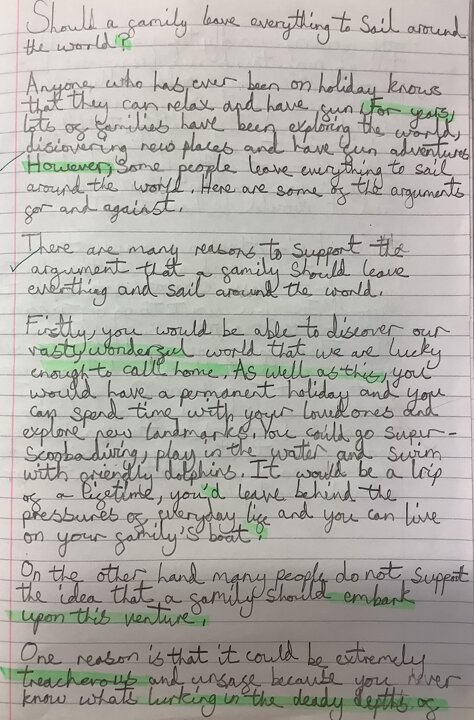 Should a family leave everything to sail around
the world?
Anyone who has ever been on holiday knows
that they can relax and have fun. For years,
lots of families have been exploring the world,
discovering new places and have fun adventures.
However, Some people leave everything to sail
around the world. Here are some of the arguments
for and against.
There are many reasons to support the
argument that a family should leave
everthing and sail around the world.
Firstly, you would be able to discover our
vasty wonderful world that we are lucky
enough to call home. As well as this, you
would have a permanent holiday and you
can spend time with your loved ones and
explore new landmarks. You could go super-
scoobadiving, play in the water and swim
with friendly dolphins. It would be a trip
of a lifetime, you'd leave behind the
pressures of everyday life and you can live
on your family's boat!
On the other hand many people do not support
the idea that a family should embark
upon this venture.
One reason is that it could be extremely
treacherous and unsafe because you never
know whats lurking in the deadly depths of